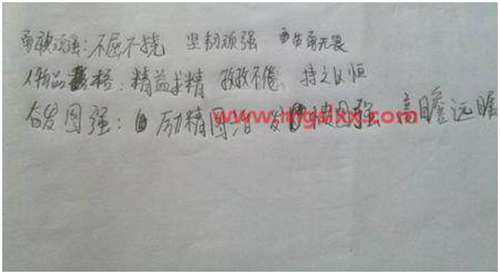 勇敢顽强：不屈不挠 坚韧顽强 勇者无畏
人物品格：精益求精 孜孜不倦 持之以恒
奋发图强：励精图治 发愤图强 高瞻远瞩
www.mgdxx.com